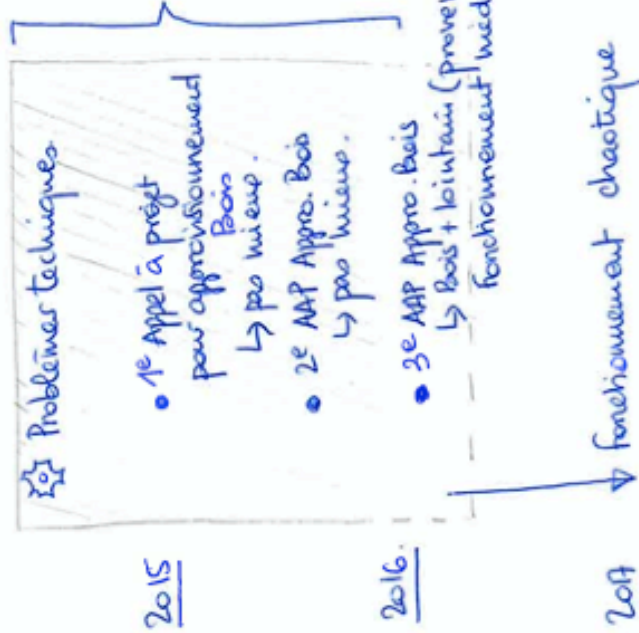 Problèmes techniques
2015
• 1e Appel à projet
pour approvisionnement
Bois
↳ pas mieux.
• 2e AAP Appro. Bois
↳ pas mieux.
2016.
• 3e AAP Appro. Bois
↳ Bois + lointain (
fonctionnement
2017
fonctionnement chaotique